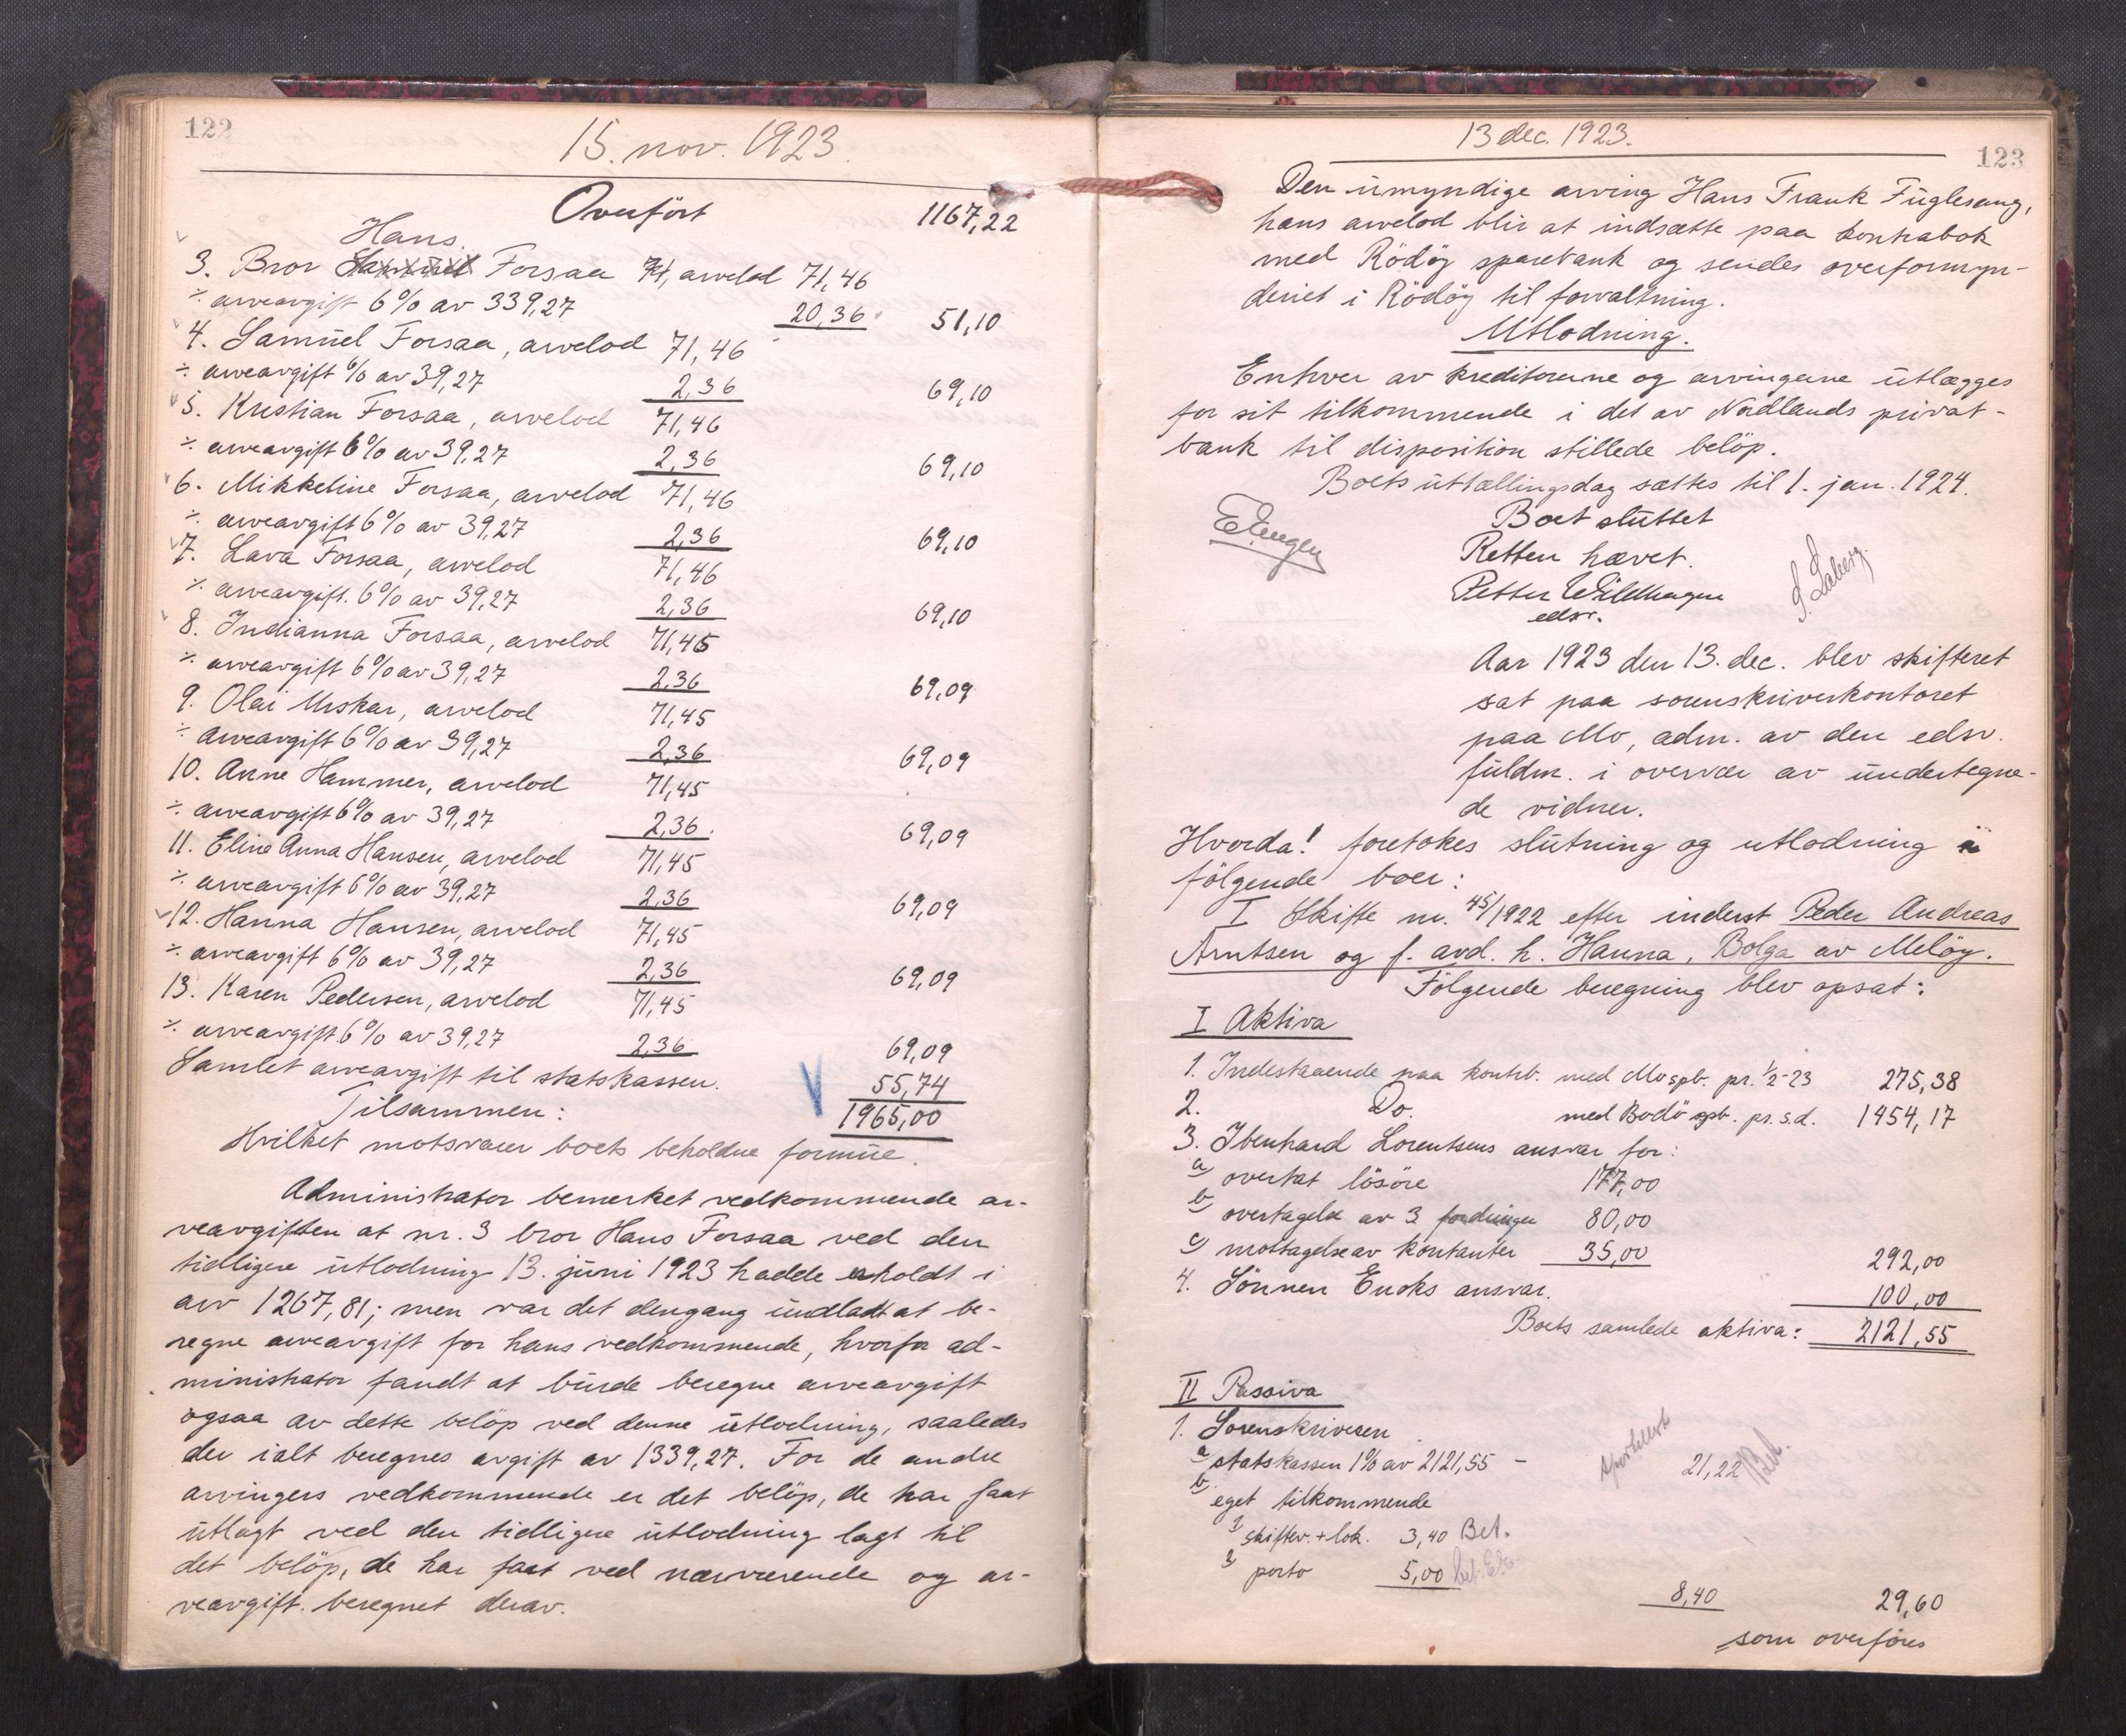 122
15. nov. 1923.
Overført 1167,22
Hans.
3. Bror Samuel Forsaa 71, arvelod 71,46
÷ arveavgift 6% av 339,27 20,36 51,10
4. Samuel Forsaa, arvelod 71,46
÷ arveavgift 6% av 39,27 2,36 69,10
5. Kristian Forsaa, arvelod 71,46
÷ arveavgift 6% av 39,27 2,36 69,10
6. Mikkeline Forsaa, arvelod 71,46
÷ arveavgift 6% av 39,27 2,36 69,10
7. Lava Forsaa, arvelod 71,46
÷ arveavgift. 6% av 39,27 2,36 69,10
8. Indianna Forsaa, arvelod 71,45
÷ arveavgift 6% av 39,27 2,36 69,09
9. Olai Urskar, arvelod 71,45
÷ arveavgift 6% av 39,27 2,36 69,09
10. Anne Hammer, arvelod 71,45
÷ arveavgift 6% av 39,27 2,36. 69,09
11. Eline Anna Hansen, arvelod 71,45
÷ arveavgift 6% av 39,27 2,36 69,09
12. Hanna Hansen, arvelod 71,45
÷ arveavgift 6% av 39,27 2,36 69,09
13. Karen Pedersen, arvelod 71,45
÷ arveavgift 6% av 39,27 2,36 69,09
Samlet arveavgift til statskassen. 55,74
Tilsammen: 1965,00
Hvilket motsvarer boets beholdne formue.
Administrator bemerket vedkommende ar-
veavgiften at nr. 3 bror Hans Forsaa ved den
tidligere utlodning 13. juni 1923 hadde erholdt i
arv 1267,81; men var det dengang undladt at be-
regne arveavgift for hans vedkommende, hvorfor ad-
ministrator fandt at burde beregne arveavgift
ogsaa av dette beløp ved denne utlodning, saaledes
der ialt beregnes avgift av 1339,27. For de andre
arvingers vedkommende er det beløp, de har faat
utlagt ved den tidligere utlodning lagt til
det beløp, de har faat ved nærværende og ar-
veavgift. beregnet derav.
13 dec. 1923.
123
Den umyndige arving Hans Frank Fuglesang,
hans arvelod blir at indsætte paa kontrabok
med Rødøy sparebank og sendes overformyn-
deriet i Rødøy til forvaltning.
Utlodning.
Enhver av kreditorerne og arvingerne utlægges
for sit tilkommende i det av Nordlands privat-
bank til disposition stillede beløp.
Boets uttællingsdag sættes til 1. jan. 1924.
Boet sluttet
Retten hævet.
E. Engen
Petter Wildhagen
edsv.
Aar 1923 den 13. dec. blev skifteret
sat paa sorenskriverkontoret
paa Mo, adm. av den edsv.
fuldm. i overvær av undertegne-
de vidner.
Hvorda! foretokes slutning og utlodning i
følgende boer:
I Skifte nr. 45/1922 efter inderst Peder Andreas
Arntsen og f. avd. h. Hanna, Bolga av Meløy.
Følgende beregning blev opsat:
I Aktiva
1. Indestaaende paa kontrb. med Mo spb. pr. 1/2-23 275,38
2. Do. med Bodø spb. pr. s.d. 1454,17
3. Ibenhard Lorentsens ansvar for:
a overtat løsøre 177,00
b overtagelse av 3 fordringer 80,00
c mottagelse av kontanter 35,00 292,00
4. Sønnen Enoks ansvar. 100,00
Boets samlede aktiva: 2121,55
II Passiva
1. Sorenskriveren
a statskassen 1% av 2121,55 - 21,22 Bet.
b eget tilkommende
1 skiftev. + lok. 3,40 Bet.
2 porto 5,00 bet.
8,40 29,60
som overføres